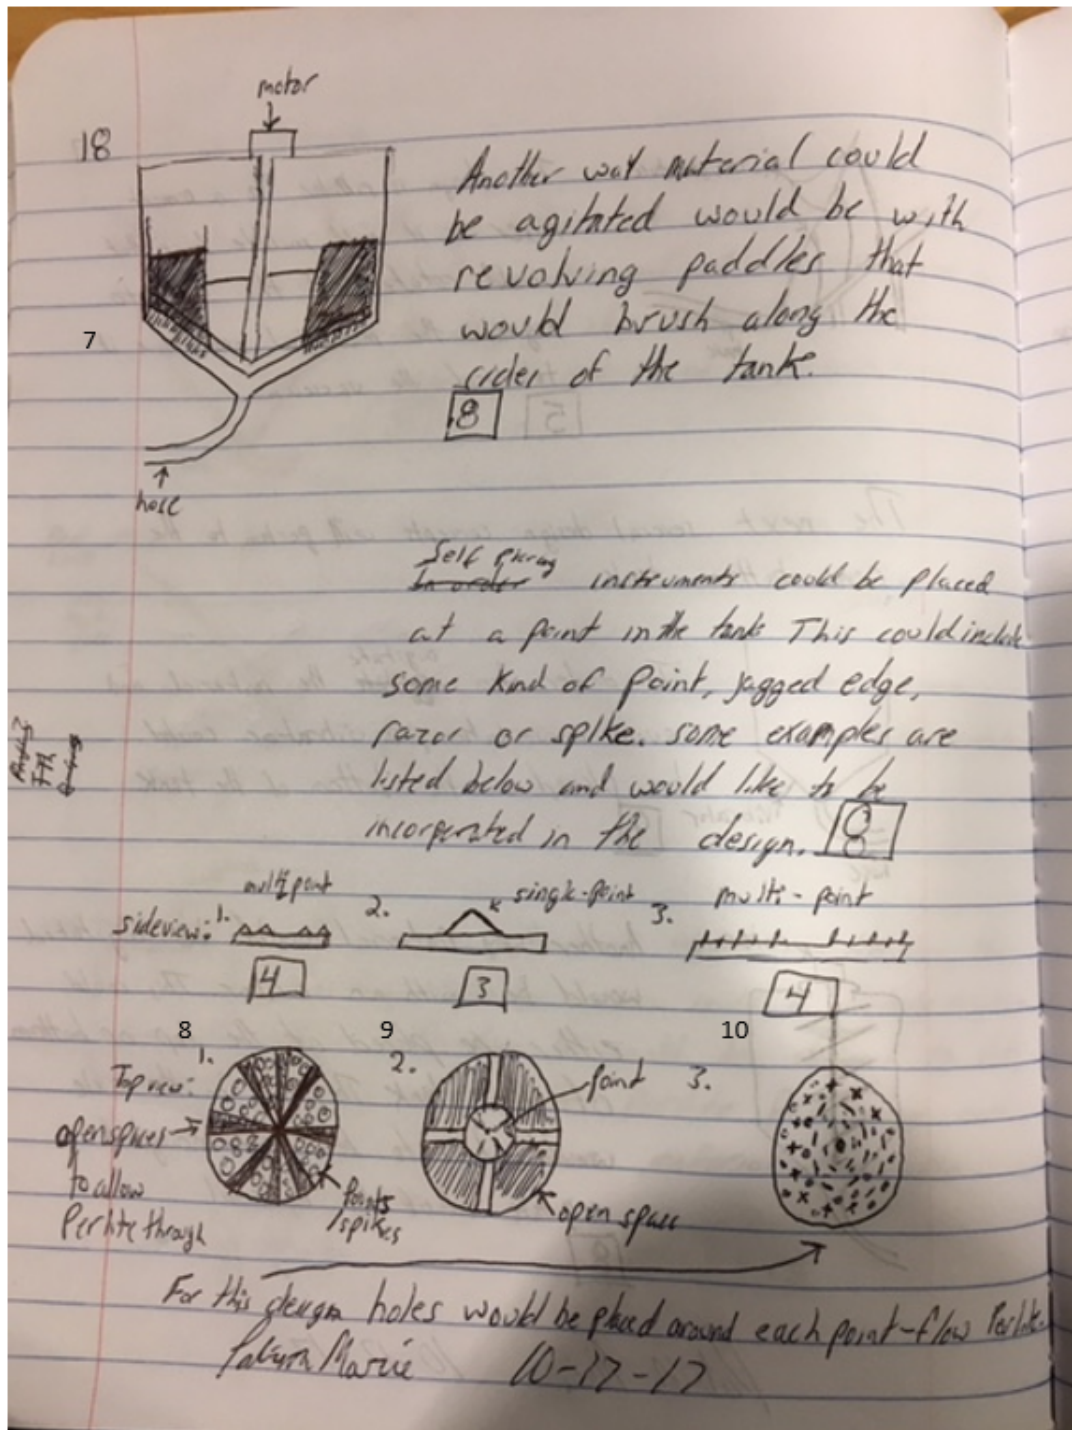 motor
18
Another way material could
be agitated would be with
revolving paddles that
would brush along the
sides of the tank.
7
8
hose
Self piercing
In order instruments could be placed
at a point in the tank This could include
some kind of point, jagged edge,
razor or spike. some examples are
listed below and would like to be
incorperated in the design. 8
multipoint
single-point
multi-point
sideview: 1.
2.
3.
4
3
4
8
9
10
1.
2.
3.
Top view:
point
open spaces
to allow
Perlite through
points
/spikes
open space
For this design holes would be placed around each point-flow Perlite.
Marie 10-17-17